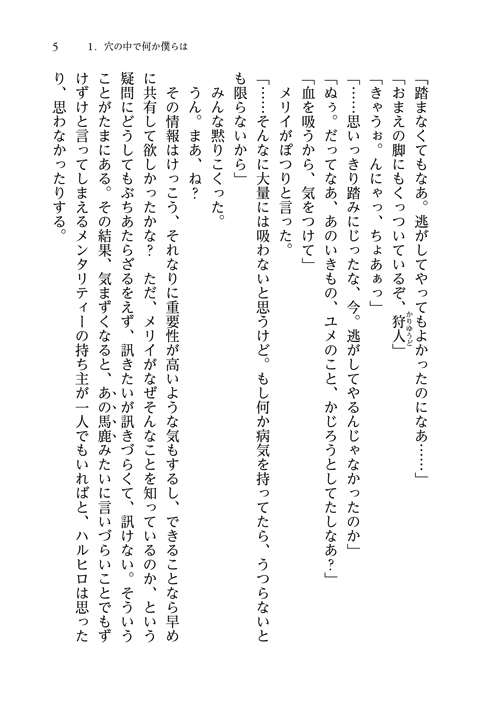 5　1．穴の中で何か僕らは
「踏まなくてもなあ。逃がしてやってもよかったのになあ……」
「おまえの脚にもくっついているぞ、狩人」
かりゆうど
「きゃうぉ。んにゃっ、ちょあぁっ」
「……思いっきり踏みにじったな、今。逃がしてやるんじゃなかったのか」
「ぬぅ。だってなあ、あのいきもの、ユメのこと、かじろうとしてたしなあ？」
「血を吸うから、気をつけて」
メリイがぽつりと言った。
「……そんなに大量には吸わないと思うけど。もし何か病気を持ってたら、うつらないと
も限らないから」
みんな黙りこくった。
うん。まあ、ね？
その情報はけっこう、それなりに重要性が高いような気もするし、できることなら早め
に共有して欲しかったかな？　ただ、メリイがなぜそんなことを知っているのか、という
疑問にどうしてもぶちあたらざるをえず、訊きたいが訊きづらくて、訊けない。そういう
ことがたまにある。その結果、気まずくなると、あの馬鹿みたいに言いづらいことでもず
けずけと言ってしまえるメンタリティーの持ち主が一人でもいればと、ハルヒロは思った
り、思わなかったりする。